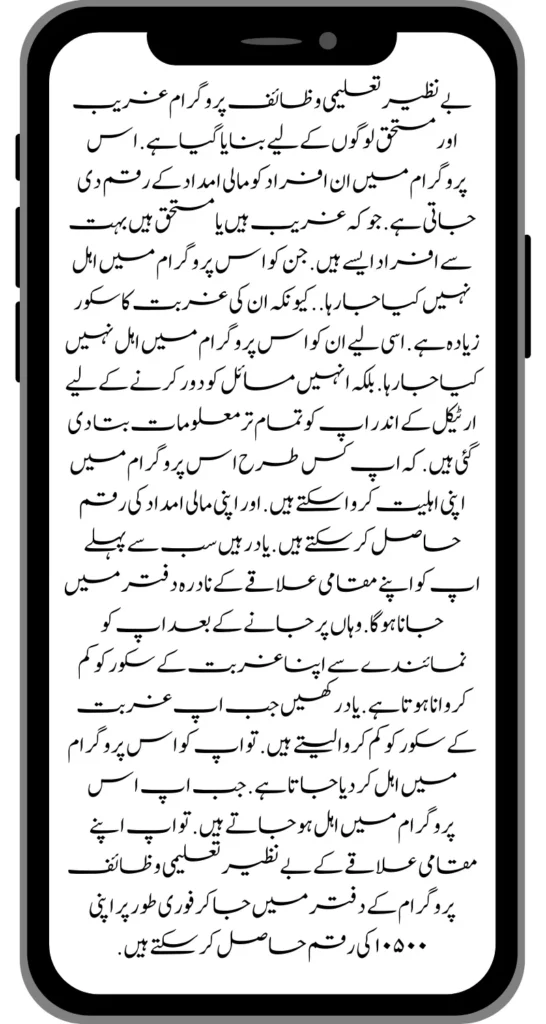 بے نظیر تعلیمی وظائف پروگرام غریب
اور مستحق لوگوں کے لیے بنایا گیا ہے. اس
پروگرام میں ان افراد کو مالی امداد کے رقم دی
جاتی ہے. جو کہ غریب ہیں یا مستحق ہیں بہت
سے افراد ایسے ہیں. جن کو اس پروگرام میں اہل
نہیں کیا جا رہا.. کیونکہ ان کی غربت کا سکور
زیادہ ہے. اسی لیے ان کو اس پروگرام میں اہل نہیں
کیا جا رہا. بلکہ انہیں مسائل کو دور کرنے کے لیے
ارٹیکل کے اندر اپ کو تمام تر معلومات بتا دی
گئی ہیں. کہ اپ کس طرح اس پروگرام میں
اپنی اہلیت کروا سکتے ہیں. اور اپنی مالی امداد کی رقم
حاصل کر سکتے ہیں. یاد رہیں سب سے پہلے
اپ کو اپنے مقامی علاقے کے نادرہ دفتر میں
جانا ہوگا. وہاں پر جانے کے بعد اپ کو
نمائندے سے اپنا غربت کے سکور کو کم
کروانا ہوتا ہے. یاد رکھیں جب اپ غربت
کے سکور کو کم کروا لیتے ہیں. تو اپ کو اس پروگرام
میں اہل کر دیا جاتا ہے. جب اپ اس
پروگرام میں اہل ہو جاتے ہیں. تو اپ اپنے
مقامی علاقے کے بے نظیر تعلیمی وظائف
پروگرام کے دفتر میں جا کر فوری طور پر اپنی
۱۰۵۰۰ کی رقم حاصل کر سکتے ہیں.